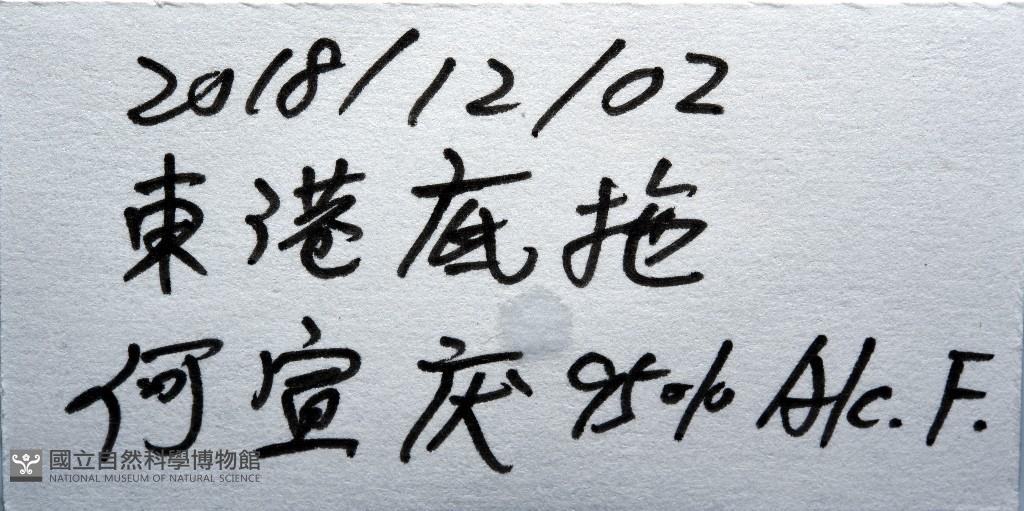 2018/12/02
東港底拖
何宣庆 95% Alc. F.
國立自然科學博物館
NATIONAL MUSEUM OF NATURAL SCIENCE